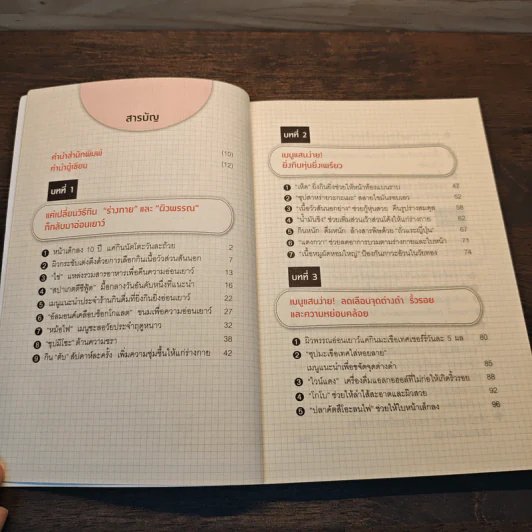 สารบัญ
คำนำสำนักพิมพ์ (10)
คำนำผู้เขียน (12)
บทที่ 1
แค่เปลี่ยนวิธีกิน "ร่างกาย" และ "ผิวพรรณ"
ก็กลับมาอ่อนเยาว์
1 หน้าเด็กลง 10 ปี แค่กินนัตโตะวันละถ้วย 2
2 ผิวกระชับเต่งตึงด้วยการเลือกกินเนื้อวัวส่วนสันนอก 7
3 "ไข่" แหล่งรวมสารอาหารเพื่อคืนความอ่อนเยาว์ 13
4 "สปาเกตตีซีฟู้ด" มื้อกลางวันอันดับหนึ่งที่แนะนำ 16
5 เมนูแนะนำประจำร้านกินดื่มที่ยิ่งกินยิ่งอ่อนเยาว์ 22
6 "อัลมอนด์เคลือบช็อกโกแลต" ขนมเพื่อความอ่อนเยาว์ 27
7 "หม้อไฟ" เมนูชะลอวัยประจำฤดูหนาว 32
8 "ซุปมิโซะ" ต้านความชรา 38
9 กิน "ตับ" สัปดาห์ละครั้ง เพิ่มความชุ่มชื้นให้แก่ร่างกาย 42
บทที่ 2
เมนูแสนง่าย!
ยิ่งกินหุ่นยิ่งเพรียว
1 "เห็ด" ยิ่งกินยิ่งช่วยให้หน้าท้องแบนราบ 47
2 สลายไขมันรอบเอว 52
3 "เนื้อวัวสันนอกย่าง" ช่วยกู้หุ่นสวย คืนรูปร่างสมดุล 58
4 "น้ำมันขิง" ช่วยเพิ่มส่วนเว้าส่วนโค้งให้แก่ร่างกาย 62
5 กินหนัก ดื่มหนัก ล้างสารพิษด้วย "ถั่วแระญี่ปุ่น" 67
6 "แตงกวา" ช่วยลดอาการบวมตามร่างกายและใบหน้า 71
7 "เนื้อหมูผัดหอมใหญ่" ป้องกันภาวะอ้วนในวัยทอง 74
บทที่ 3
เมนูแสนง่าย! ลดเลือนจุดด่างดำ ริ้วรอย
และความหย่อนคล้อย
1 ผิวพรรณอ่อนเยาว์แค่กินมะเขือเทศเชอร์รี่วันละ 5 ผล 80
2 "ซุปมะเขือเทศใส่หอยลาย"
เมนูแนะนำเพื่อขจัดจุดด่างดำ 85
3 "ไวน์แดง" เครื่องดื่มแอลกอฮอล์ที่ไม่ก่อให้เกิดริ้วรอย 88
4 "โกโบ" ช่วยให้ลำไส้สะอาดและผิวสวย 92
5 ช่วยให้ใบหน้าเด็กลง 96